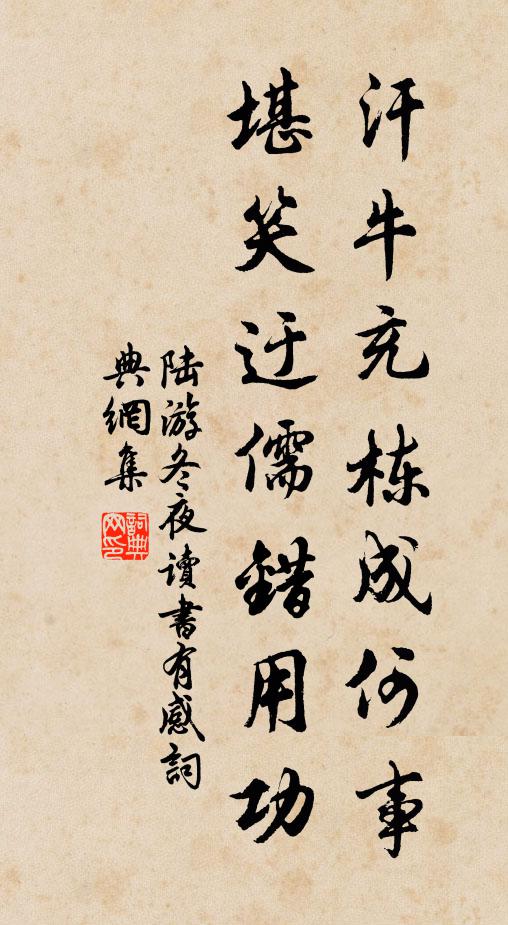 汗牛充栋成何事
堪笑迂儒錯用功
陆游冬夜讀書有感詞
典網集
詞典
网印